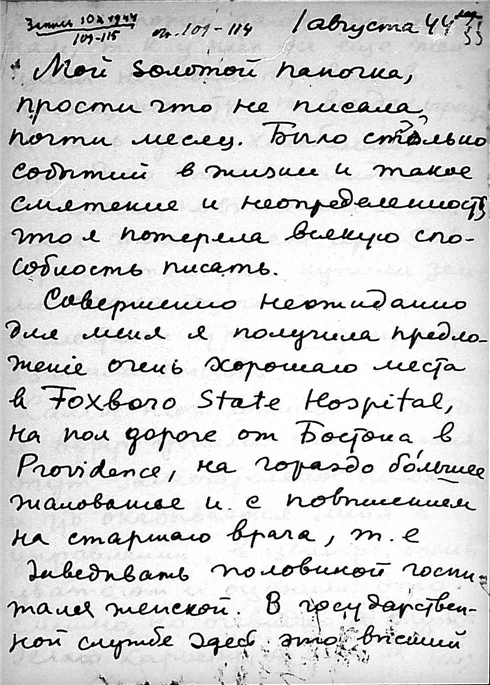 10 X 1944 1 августа 44 года
109-115 стр. 109-114 33
Мой золотой папочка,
прости что не писала
почти месяц. Было столько
событий в жизни и такое
смятение и неопределенность
что я потеряла всякую спо-
собность писать.
Совершенно неожиданно
для меня я получила предло-
женіе очень хорошаго места
в Foxboro State Hospital,
на пол дороге от Бостона в
Providence, на гораздо большее
жалованье и с повышением
на старшаго врача, т.е
заведывать половиной госпи-
таля женской. В государствен-
ной службе здесь это высший